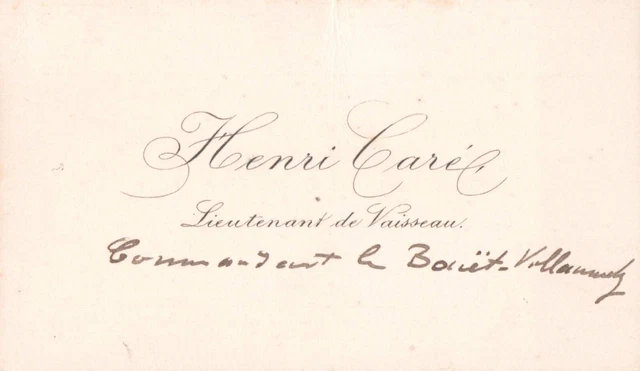 Henri Caré,
Lieutenant de Vaisseau.
Commandant le Bouët-Villaumetz